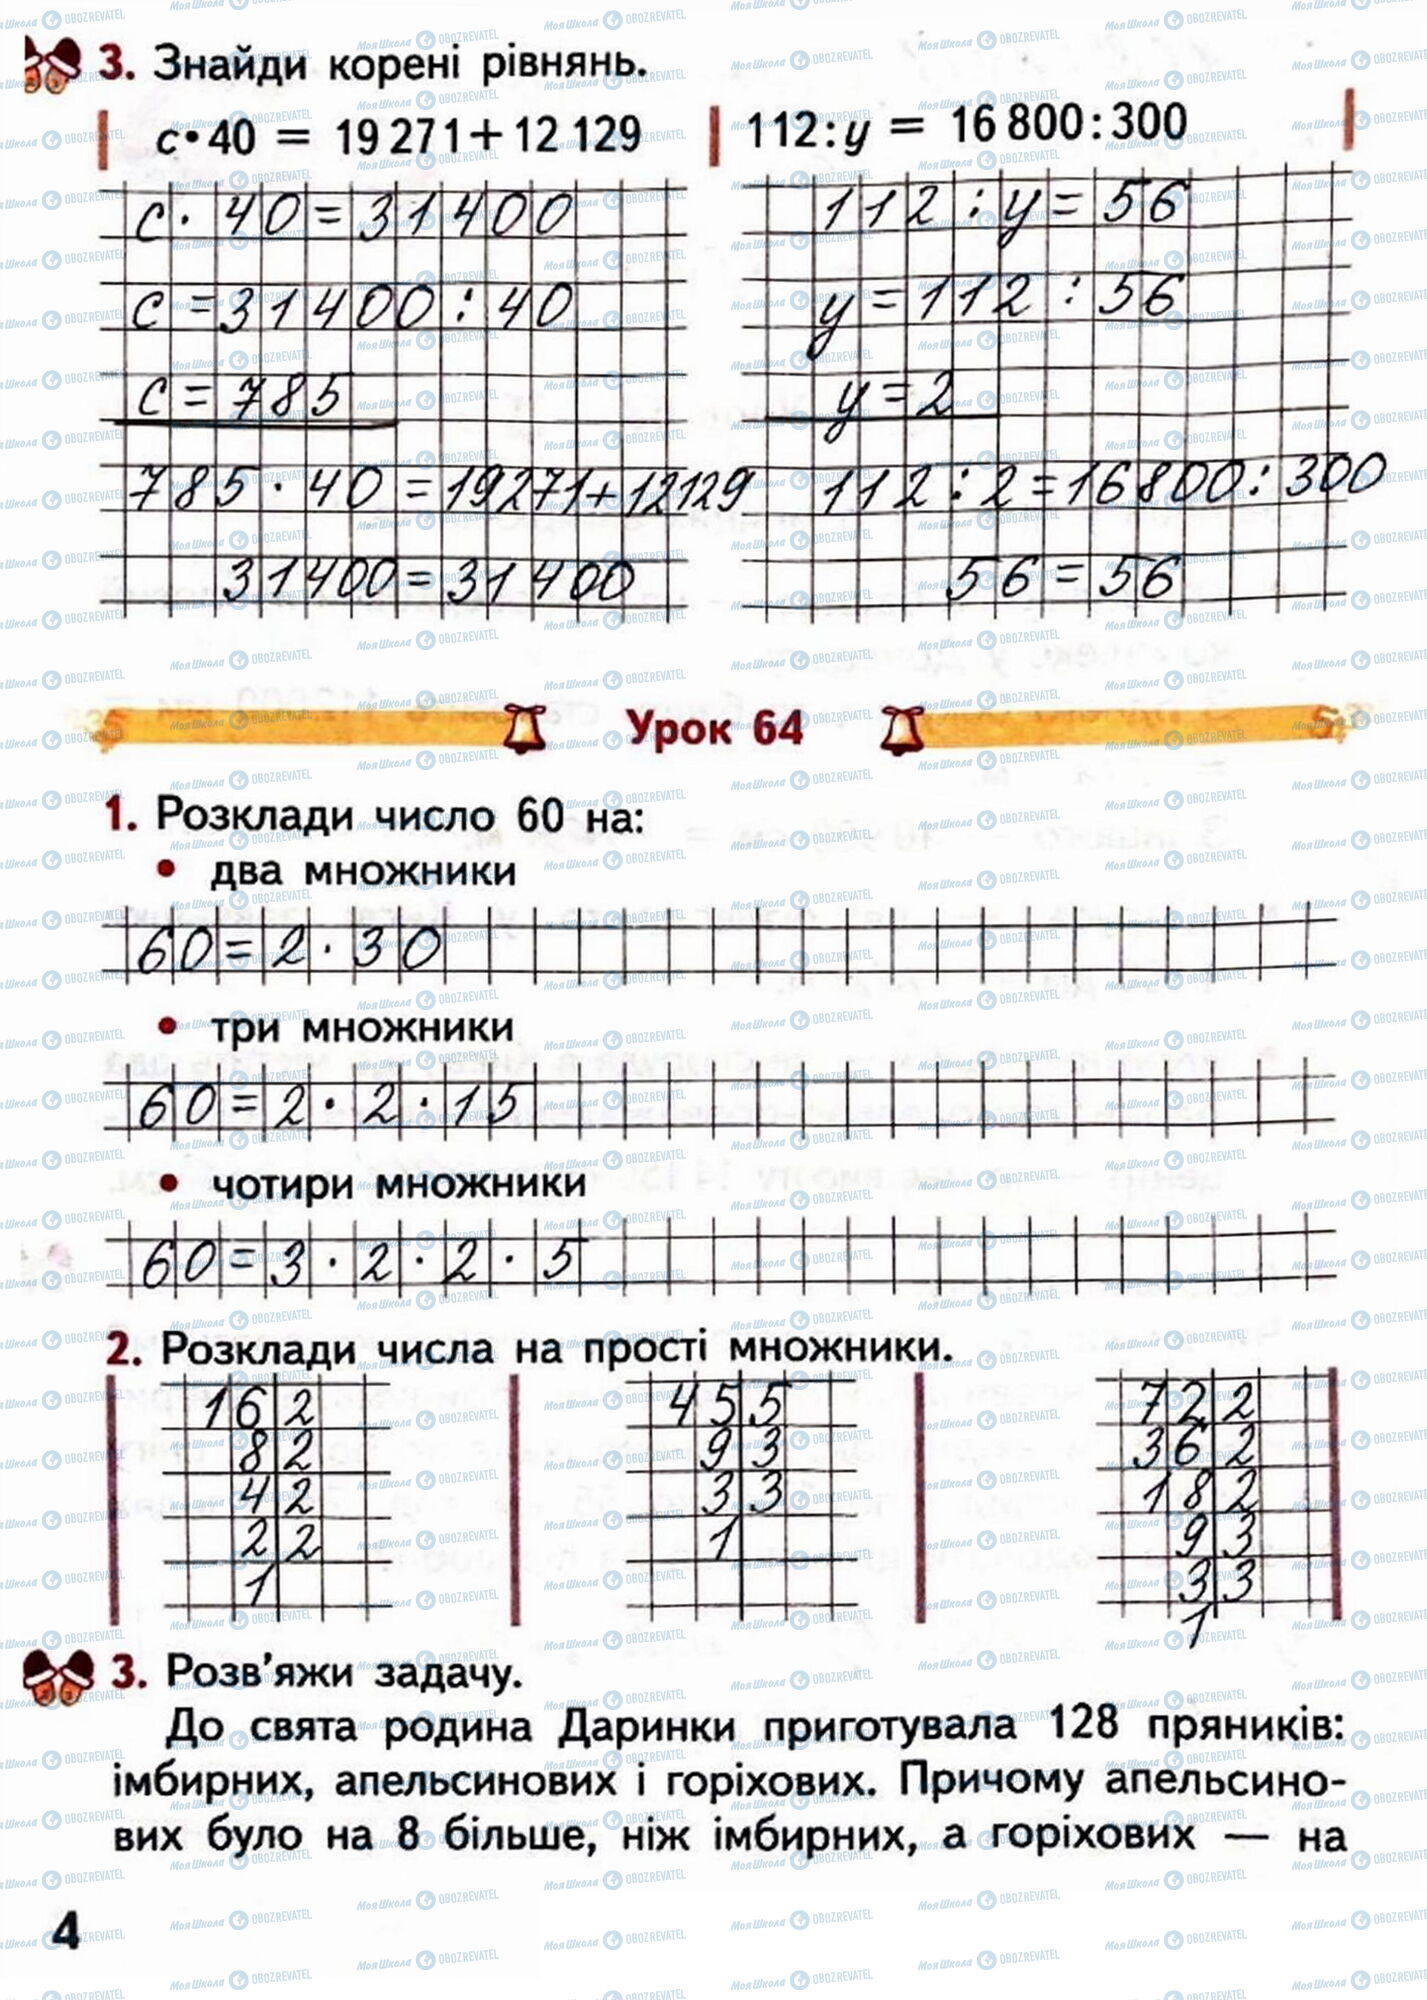 3. Знайди корені рівнянь.
c•40 = 19 271+12 129
112:y = 16 800:300
c · 40 = 31400
c = 31400 : 40
c = 785
785 · 40 = 19271+12129
31400 = 31400
112 : y = 56
y = 112 : 56
y = 2
112 : 2 = 16800 : 300
56 = 56
Урок 64
1. Розклади число 60 на:
• два множники
60 = 2 · 30
• три множники
60 = 2 · 2 · 15
• чотири множники
60 = 3 · 2 · 2 · 5
2. Розклади числа на прості множники.
16 2
8 2
4 2
2 2
1
45 5
9 3
3 3
1
72 2
36 2
18 2
9 3
3 3
1
3. Розв’яжи задачу.
До свята родина Даринки приготувала 128 пряників:
імбирних, апельсинових і горіхових. Причому апельсино-
вих було на 8 більше, ніж імбирних, а горіхових — на
4
МояШкола OBOZREVATEL